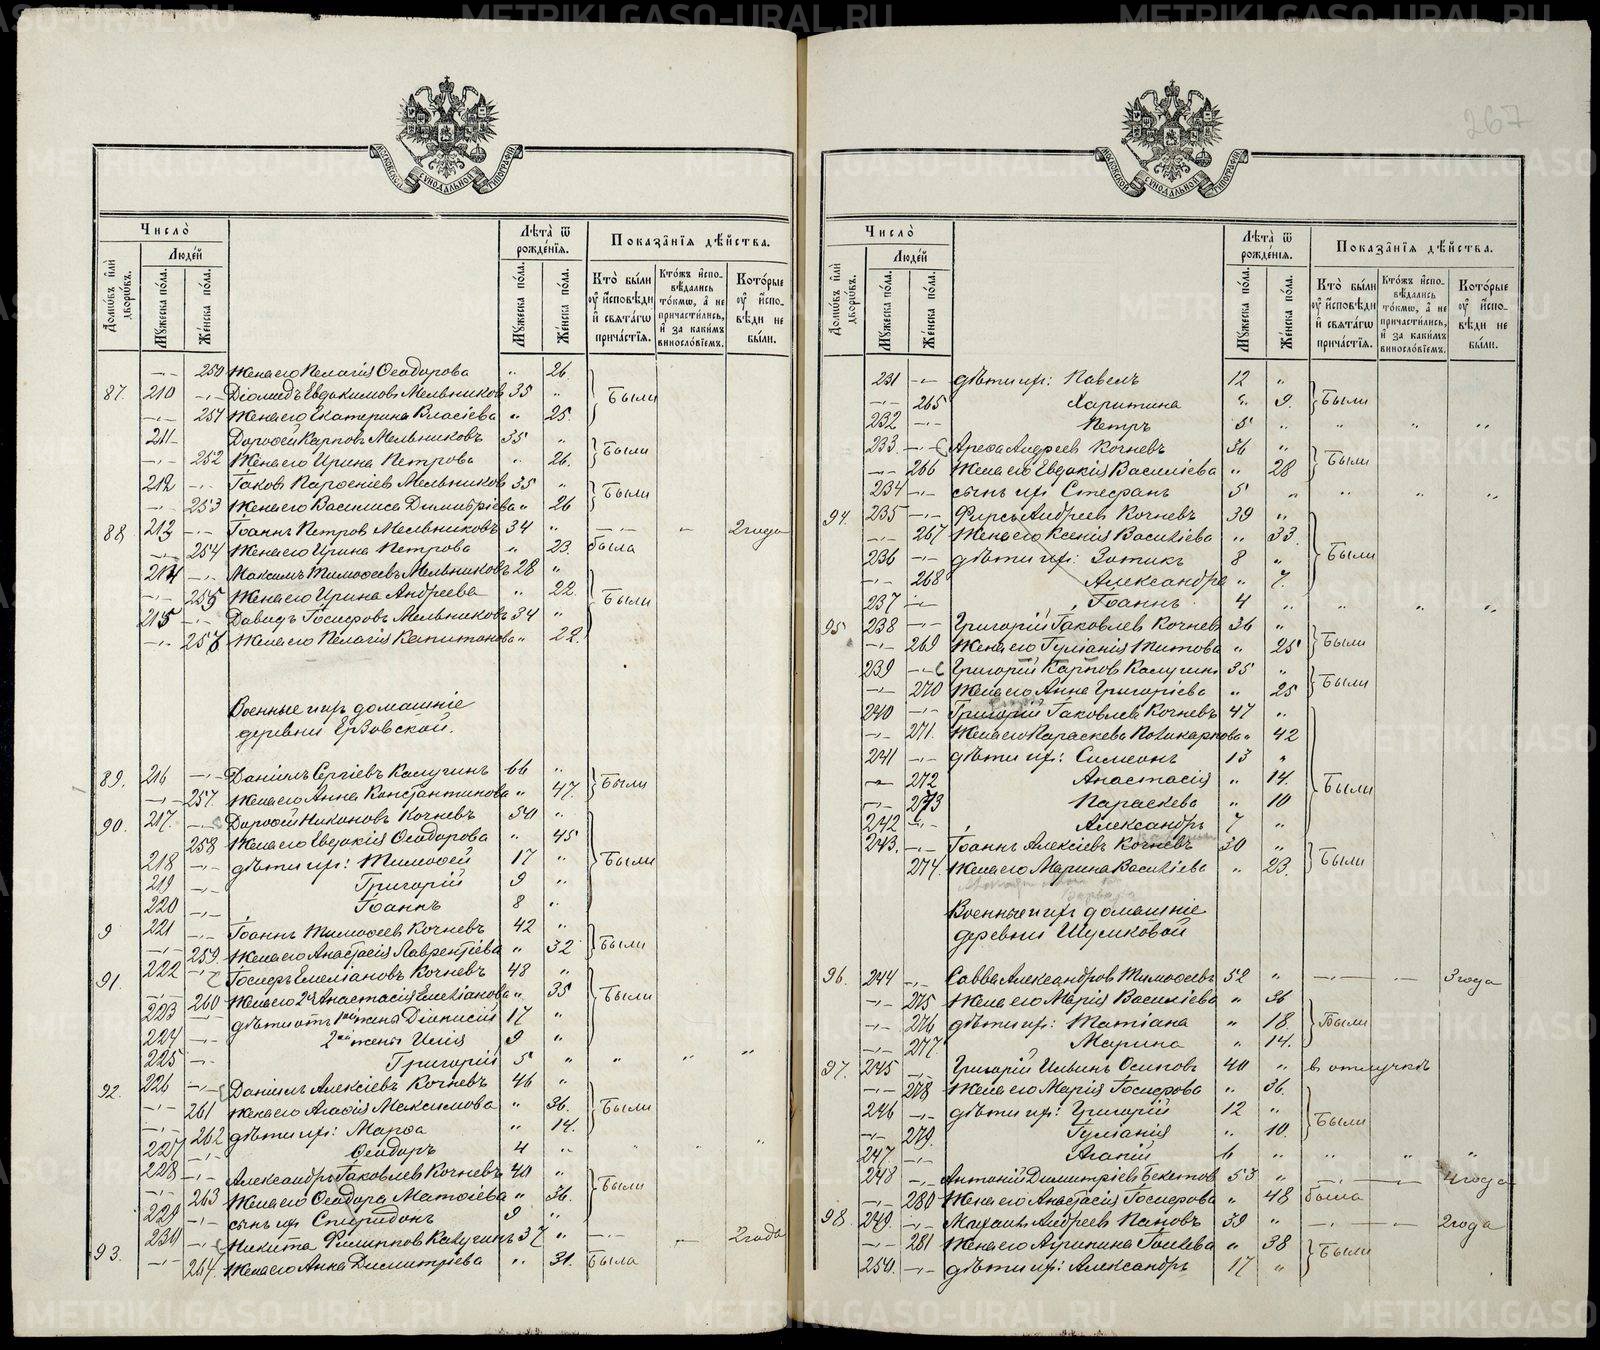 267
МОСКОВСКОЙ СѴНОДАЛЬНОЙ ТИПОГРАФІИ
Число̀
Людей
Домѡвъ и҆лѝ дворѡвъ.
Мꙋжеска по́ла.
Же́нска по́ла.
Лѣта̀ ѿ рожде́нїѧ.
Мꙋжеска по́ла.
Же́нска по́ла.
Показа̑нїѧ дѣ́йства.
Кто̀ бы́ли ᲂу҆ и҆́сповѣди и҆ свѧта́гѡ прича́стїѧ.
Кто́жъ и҆сповѣ́дались то́кмѡ, а҆ не причасти́лись, и҆ за каки́мъ винослові́емъ.
Кото́рые ᲂу҆ и҆́сповѣди не бы́ли.
-"- 250 Жена его Пелагія Ѳеодорова " 26.
87. 210 -"- Діомидъ Евдокимовъ Мельниковъ 35 " Были
-"- 251 Жена его Екатерина Власіева " 25.
211 Дороѳей Карповъ Мельниковъ 35 "
-"- 252 Жена его Ирина Петрова " 26. Были
212 -"- Іаковъ Парѳеніевъ Мельниковъ 35 "
-"- 253 Жена его Василиса Димитріева " 26 Были
88. 213 -"- Іоаннъ Петровъ Мельниковъ 34 " -"- " 2 года
-"- 254 Жена его Ирина Петрова " 23. была
214 -"- Максимъ Тимоѳеевъ Мельниковъ 28 "
-"- 255 Жена его Ирина Андреева " 22. Были
215 -"- Давидъ Іосифовъ Мельниковъ 34 "
-"- 256 Жена его Пелагія Капитонова " 22.
Военные и ихъ домашніе
деревни Ерзовской.
89. 216 -"- Даніилъ Сергіевъ Калугинъ 66 "
-"- 257. Жена его Анна Константинова " 47. Были
90. 217. -"- Дороѳей Никоновъ Кочневъ 50 "
258 Жена его Евдокія Ѳеодорова " 45
218 -"- дѣти ихъ: Тимоѳей 17 " Были
219 -"- Григорій 9 "
220 -"- Іоаннъ 8 "
9 221 -"- Іоаннъ Тимоѳеевъ Кочневъ 42 "
-"- 259 Жена его Анастасія Лаврентіева " 32 Были
91. 222 -"- Іосифъ Емеліановъ Кочневъ 48 "
-"- 260 Жена его 2я Анастасія Емеліанова " 35 Были
223 -"- дѣти отъ 1ой жены Діонисій 17 "
224 -"- 2ой жены Илія 9 "
225 -"- Григорій 5 " " " "
92. 226 -"- Даніилъ Алексіевъ Кочневъ 46 "
-"- 261 Жена его Агаѳія Максимова " 36. Были
-"- 262 дѣти ихъ: Марѳа " 14.
227 -"- Ѳеодоръ 4 " " " "
228 -"- Александръ Іаковлевъ Кочневъ 40 "
-"- 263 Жена его Ѳеодора Матѳіева " 36. Были
229 -"- сынъ ихъ Спиридонъ 9 "
230 -"- Никита Филипповъ Калугинъ 37 " -"- " 2 года
93. -"- 264. Жена его Анна Димитріева " 31. Была
МОСКОВСКОЙ СѴНОДАЛЬНОЙ ТИПОГРАФІИ
Число̀
Людей
Домѡвъ и҆лѝ дворѡвъ.
Мꙋжеска по́ла.
Же́нска по́ла.
Лѣта̀ ѿ рожде́нїѧ.
Мꙋжеска по́ла.
Же́нска по́ла.
Показа̑нїѧ дѣ́йства.
Кто̀ бы́ли ᲂу҆ и҆́сповѣди и҆ свѧта́гѡ прича́стїѧ.
Кто́жъ и҆сповѣ́дались то́кмѡ, а҆ не причасти́лись, и҆ за каки́мъ винослові́емъ.
Кото́рые ᲂу҆ и҆́сповѣди не бы́ли.
231 -"- дѣти ихъ: Павелъ 12 "
-"- 265 Харитина " 9. Были
232 -"- Петръ 5 " " " "
233. -"- Ареѳа Андреевъ Кочневъ 36 "
-"- 266 Жена его Евдокія Василіева " 28 Были
234 -"- сынъ ихъ Стефанъ 5 " " " "
94. 235 -"- Фирсъ Андреевъ Кочневъ 39 "
-"- 267 Жена его Ксенія Василіева " 33.
236 -"- дѣти ихъ: Зотикъ 8 " Были
-"- 268 Александра " 7.
237 -"- Іоаннъ 4 " " " "
95. 238 -"- Григорій Іаковлевъ Кочневъ 36 "
-"- 269 Жена его Іуліанія Титова " 25 Были
239 -"- Григорій Карповъ Калугинъ 35 "
-"- 270 Жена его Анна Григоріева " 25 Были
240 -"- Григорій Іаковлевъ Кочневъ 47 "
-"- 271. Жена его Параскева Поликарпова " 42
241 -"- дѣти ихъ: Симеонъ 13 "
-"- 272 Анастасія " 14. Были
-"- 273 Параскева " 10
242 -"- Александръ 7 "
243. -"- Іоаннъ Алексіевъ Кочневъ 30 "
274. Жена его Марина Василіева " 23. Были
Военные и ихъ домашніе
деревни Шумковой
96. 244 -"- Савва Александровъ Тимоѳеевъ 52 " -"- -"- 3 года
-"- 275 Жена его Марія Василіева " 36
-"- 276 дѣти ихъ: Татіана " 18. Были
-"- 277. Марина " 14.
97. 245 -"- Григорій Ильинъ Осиповъ 40 " в отлучкѣ
-"- 278 Жена его Марія Іосифова " 36.
246 -"- дѣти ихъ: Григорій 12 " Были
-"- 279. Іуліанія " 10.
247. -"- Агапій 6 " " " "
248 -"- Антоній Димитріевъ Бекетовъ 53 " -"- -"- 4 года
-"- 280 Жена его Анастасія Іосифова " 48 была
98. 249. -"- Михаилъ Андреевъ Пановъ 39 " -"- -"- 2 года
-"- 281 Жена его Агрипина Іоилева " 38 Были
250. -"- дѣти ихъ: Александръ 17 "
METRIKI.GASO-URAL.RU